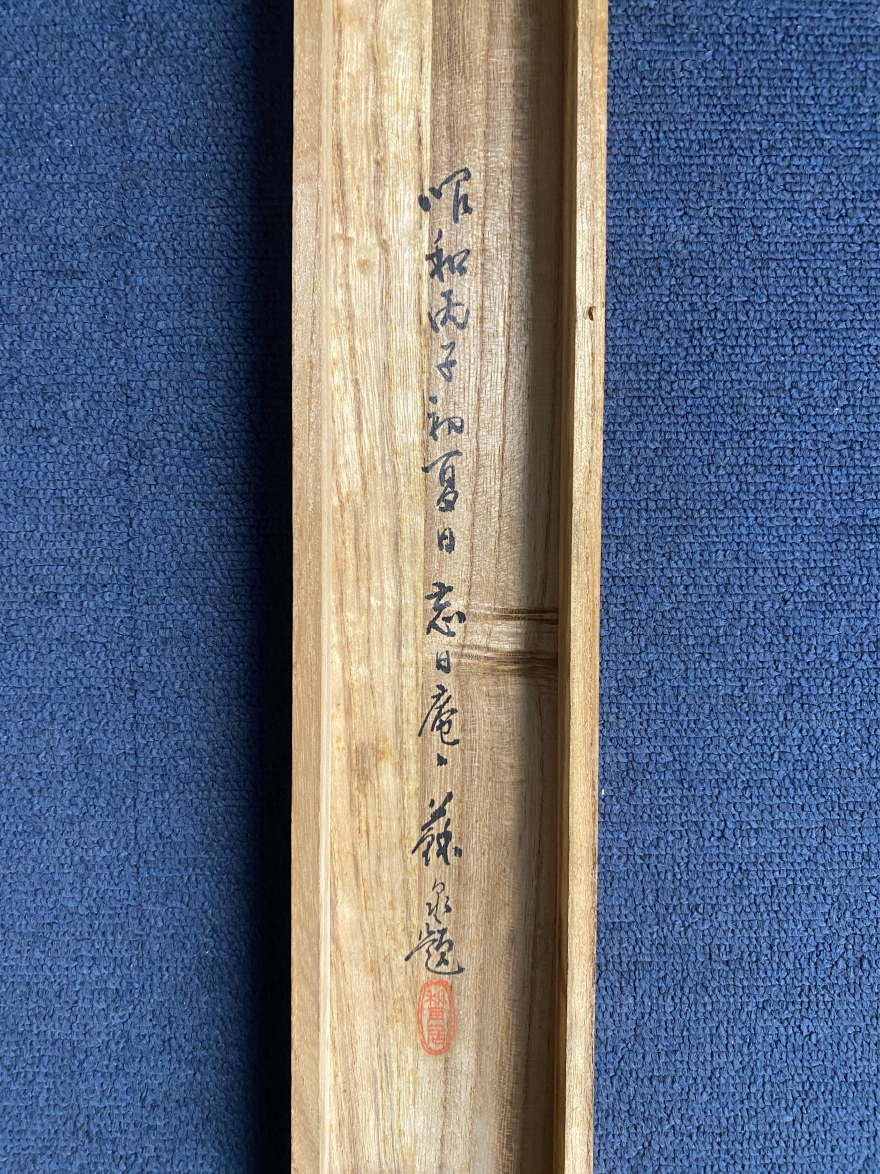 昭和丙子初夏日忘日庵、蘇泉題